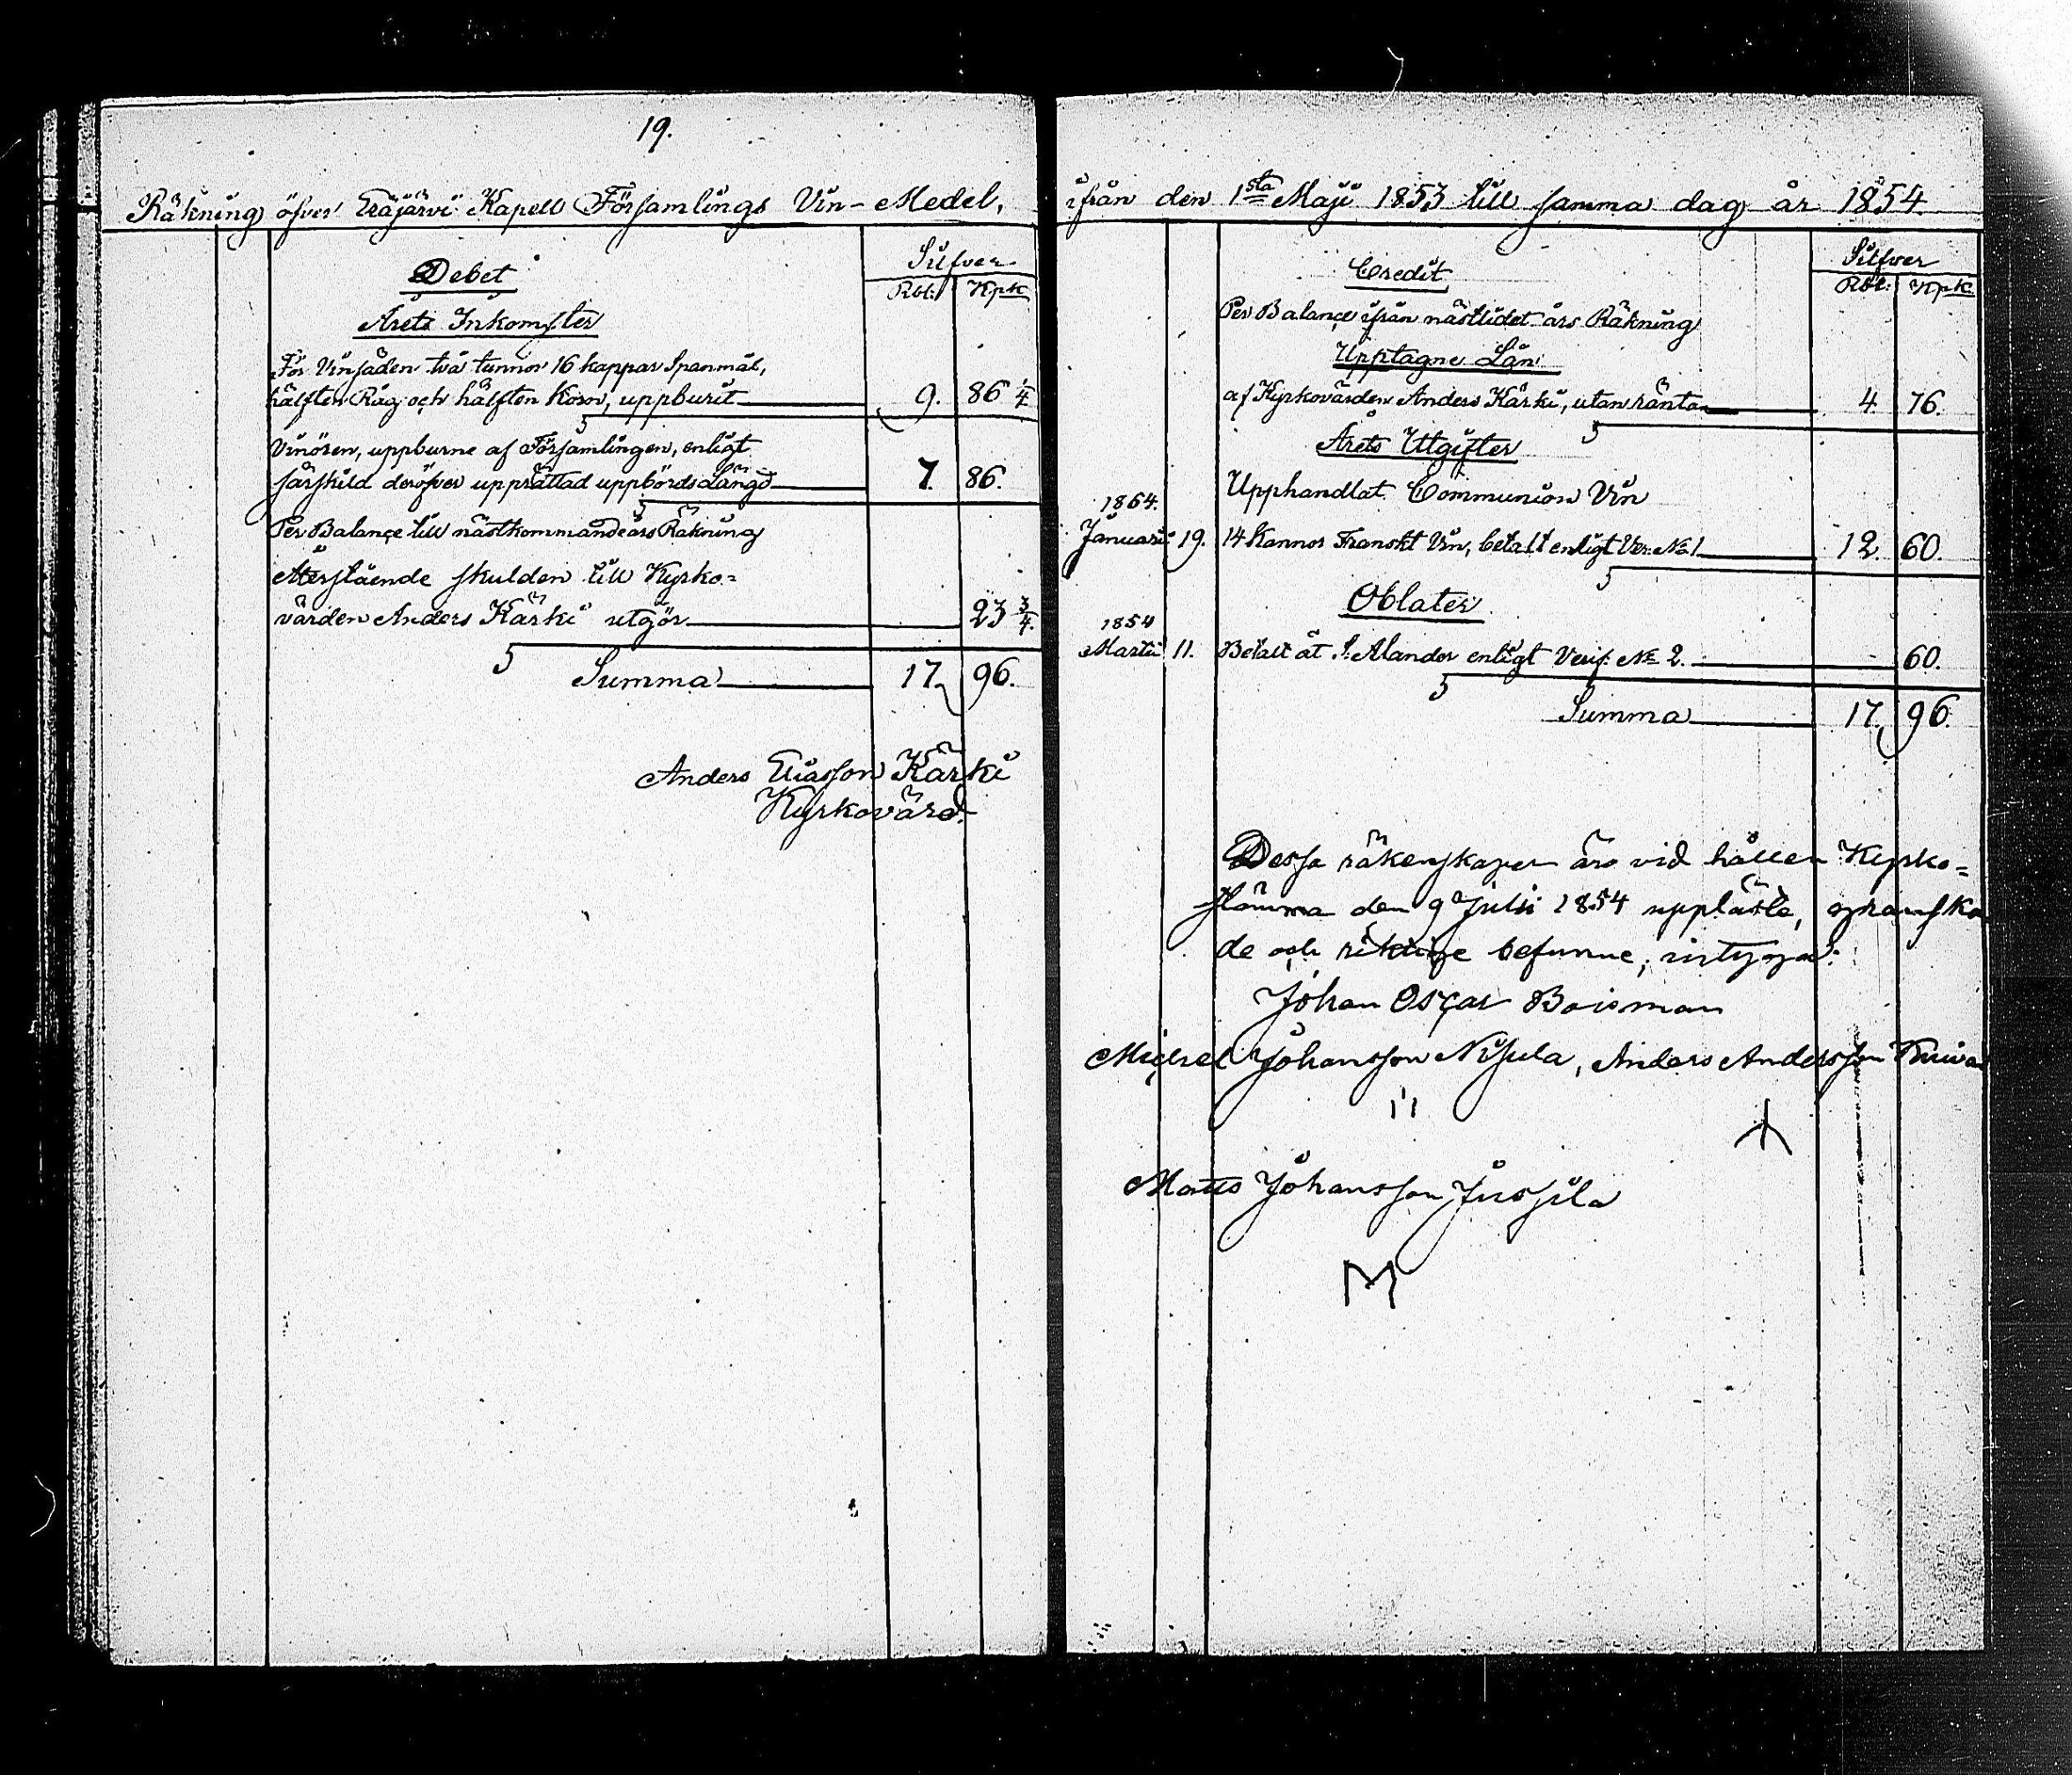 19.
Räkning öfver Eräjärvi Kapell Församlings Vin-Medel,
Debet
Silfver
Rbl: Kpk
Årets Inkomster
För Vinsäden två tunnor 16 kappar Spanmål,
hälften Råg och hälften Korn, uppburit 9. 86 1/4
Vinören, uppburne af Församlingen, enligt
särskild deröfver upprättad uppbördslängd 7. 86.
Per Balance till nästkommande års Räkning
Återstående skulden till Kyrko=
värden Anders Kärki utgör 23 3/4.
Summa 17. 96.
Anders Eliasson Kärki
Kyrkovärd.
ifrån den 1sta Maji 1853 till samma dag år 1854.
Credit
Silfver
Rbl: Kpk
Per Balance ifrån nästlidet års Räkning
Upptagne Lån
af Kyrkovärden Anders Kärki, utan ränta 4 76.
Årets Utgifter
Upphandlat Communion Vin
1864.
Januari 19. 14 Kannor Franskt Vin, betalt enligt Ver: No 1 12. 60.
Oblater
1854
Martii 11. Betalt åt Alander enligt Verif: No 2. 60.
Summa 17. 96.
Dessa räkenskaper äro vid hållen Kyrko=
stämma den 9 Julii 1854 upplästa, granska
de och riktige befunne, intyga:
Johan Oscar Boisman
Michel Johansson Nisula, Anders Andersson
Matts Johansson Jussila
M